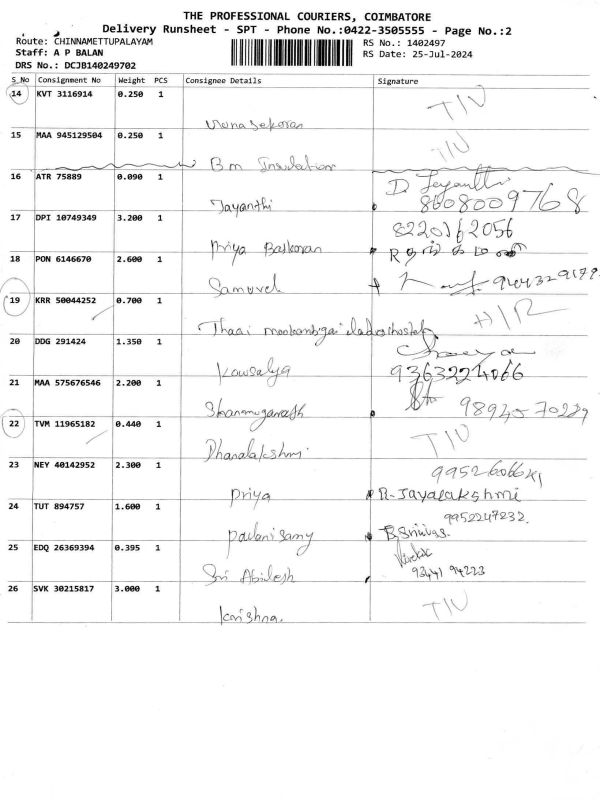 THE PROFESSIONAL COURIERS, COIMBATORE
Delivery Runsheet - SPT - Phone No.:0422-3505555 - Page No.:2
Route: CHINNAMETTUPALAYAM RS No.: 1402497
Staff: A P BALAN RS Date: 25-Jul-2024
DRS No.: DCJB140249702
S_No Consignment No Weight PCS Consignee Details Signature
14 KVT 3116914 0.250 1 T/U
15 MAA 945129504 0.250 1 T/U
B m Insulation
16 ATR 75889 0.090 1 D Jayanthi
Jayanthi 8608009768
17 DPI 10749349 3.200 1 8220362056
Priya Baskaran
18 PON 6146670 2.600 1
Samuvel
19 KRR 50044252 0.700 1 H/R
Thaai mookambigai ladies hostel
20 DDG 291424 1.350 1
Kowsalya 9363224066
21 MAA 575676546 2.200 1
Shanmuganath
22 TVM 11965182 0.440 1 T/U
Dhanalakshmi
23 NEY 40142952 2.300 1
Priya R. Jayalakshmi
24 TUT 894757 1.600 1 9952247232.
Palanisamy
25 EDQ 26369394 0.395 1
Sri Abilesh 93441 94223
26 SVK 30215817 3.000 1 T/U
Krishna.